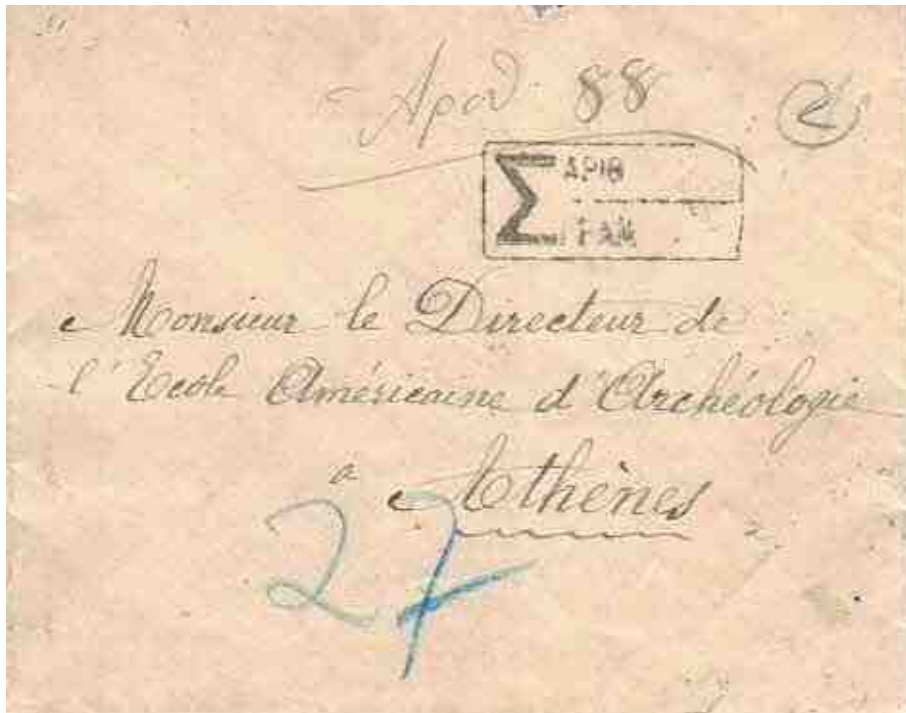 88 2
Σ ΑΡΙΘ
Monsieur le Directeur de
l'Ecole Américaine d'Archéologie
a Athènes
27